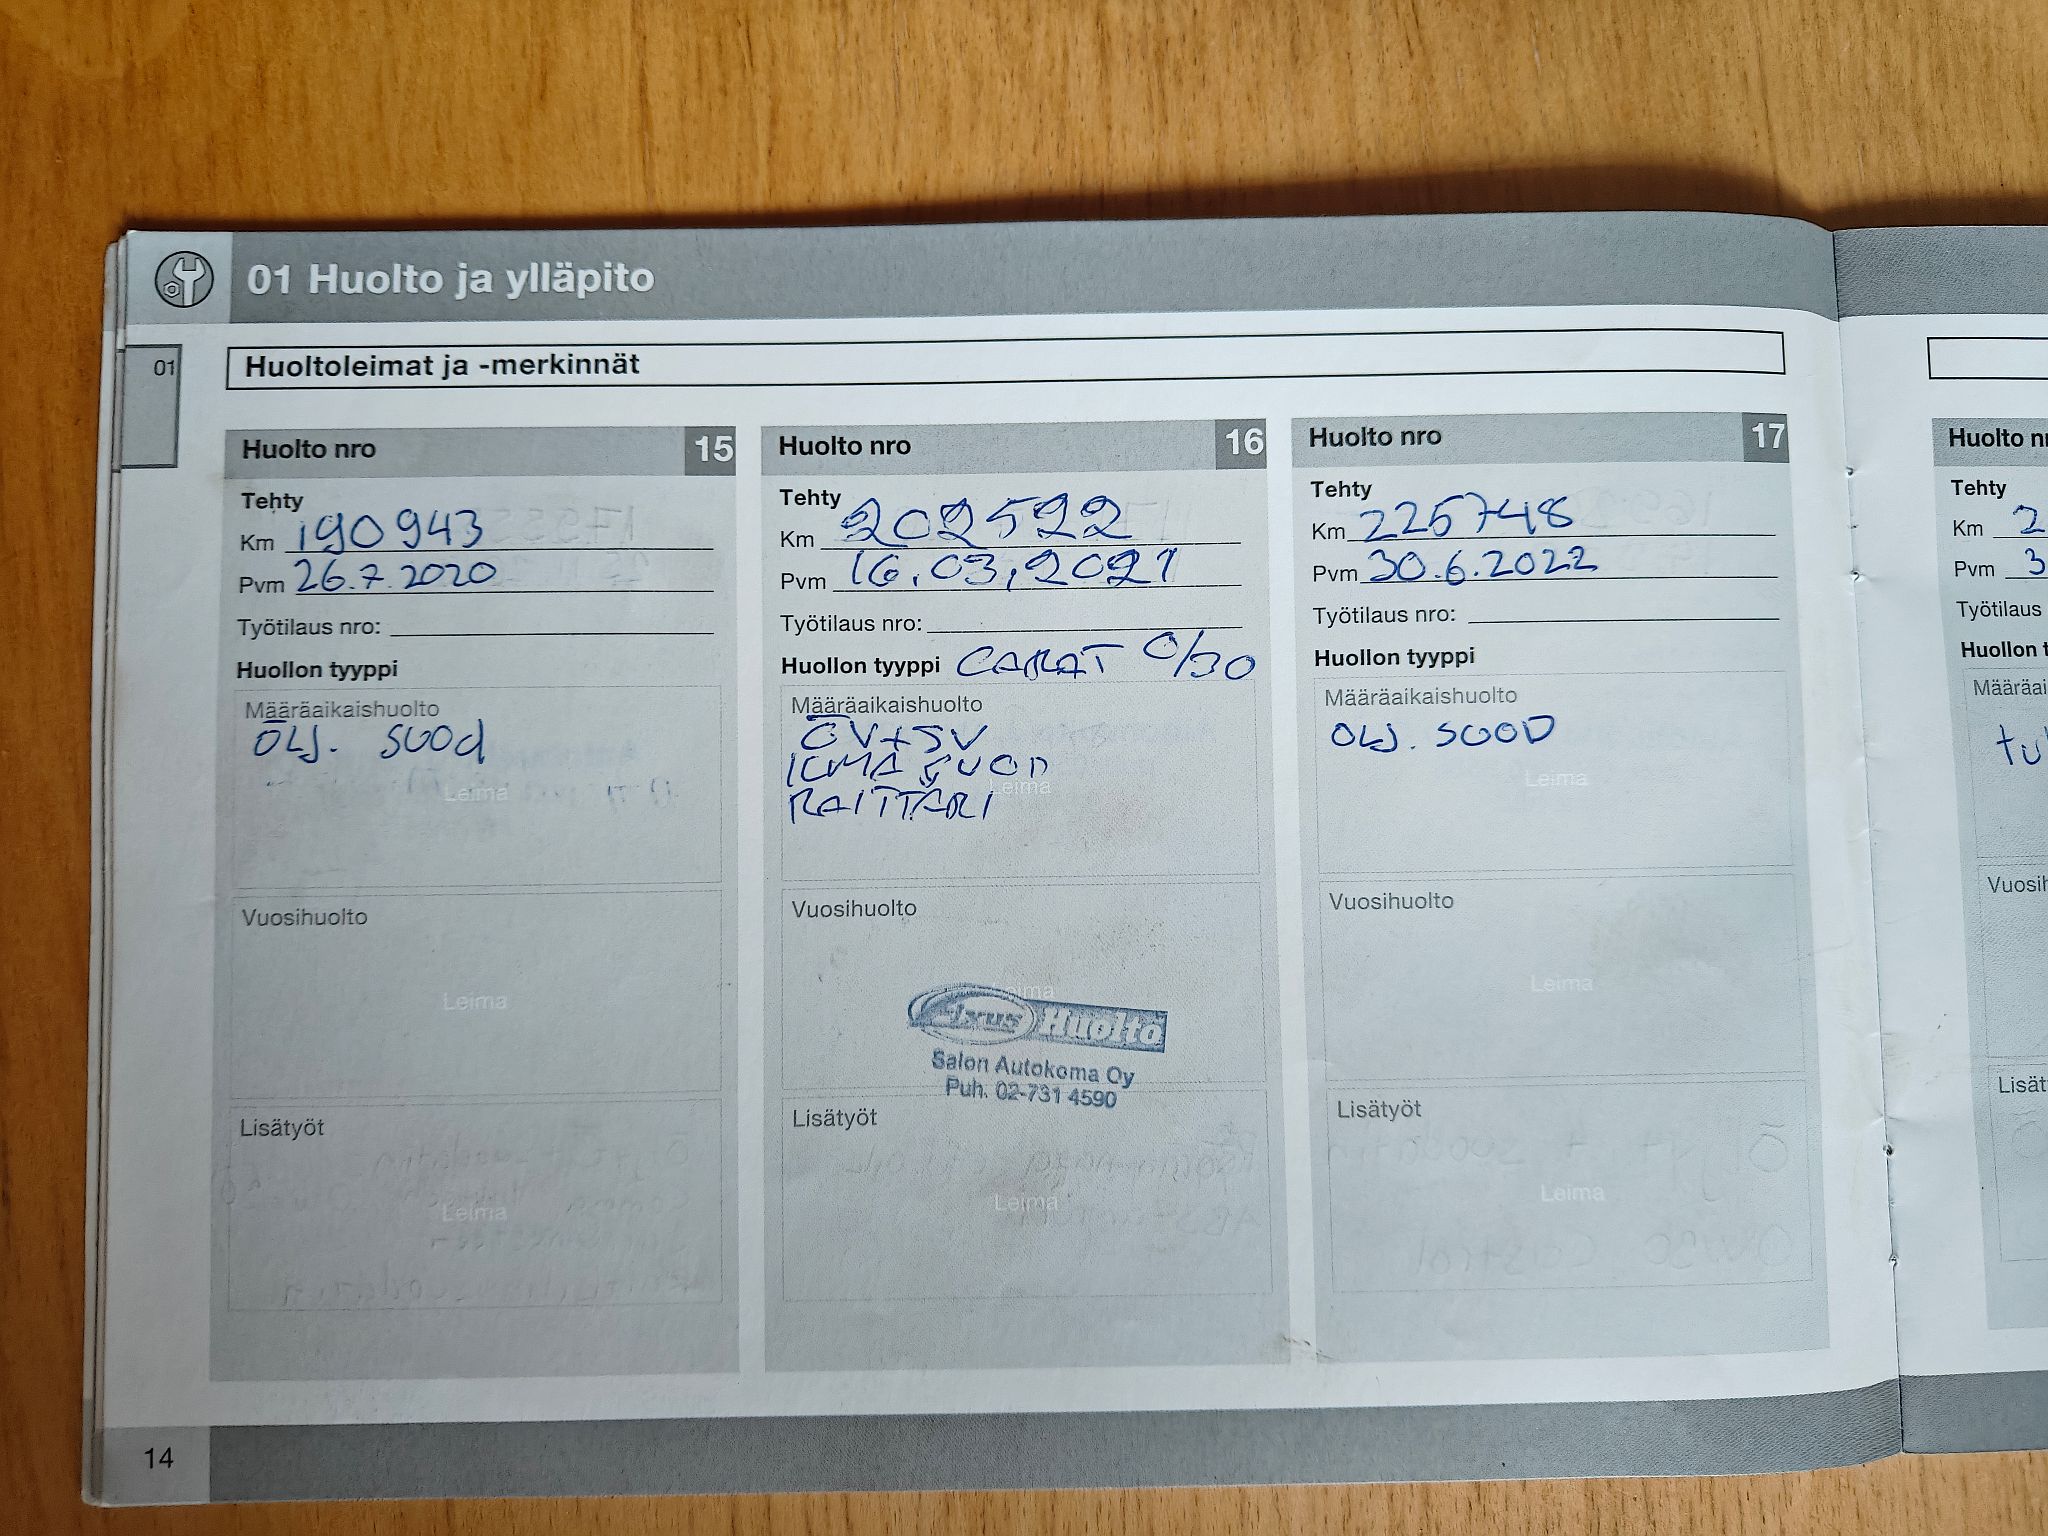 01 Huolto ja ylläpito
01
Huoltoleimat ja -merkinnät
Huolto nro 15
Tehty
Km 190943
Pvm 26.7.2020
Työtilaus nro:
Huollon tyyppi
Määräaikaishuolto
ÖLJ. suod
Leima
Vuosihuolto
Leima
Lisätyöt
Leima
Huolto nro 16
Tehty
Km 202522
Pvm 16.03.2021
Työtilaus nro:
Huollon tyyppi CARAT 0/30
Määräaikaishuolto
ÖV+SV
ILMA SUOD
RAITTÄRI
Leima
Vuosihuolto
Leima
Fixus Huolto
Salon Autokoma Oy
Puh. 02-731 4590
Lisätyöt
Leima
Huolto nro 17
Tehty
Km 225748
Pvm 30.6.2022
Työtilaus nro:
Huollon tyyppi
Määräaikaishuolto
ÖLJ. SUOD
Leima
Vuosihuolto
Leima
Lisätyöt
Leima
Huolto
Tehty
Km 2
Pvm 3
Työtilaus
Huollon
14